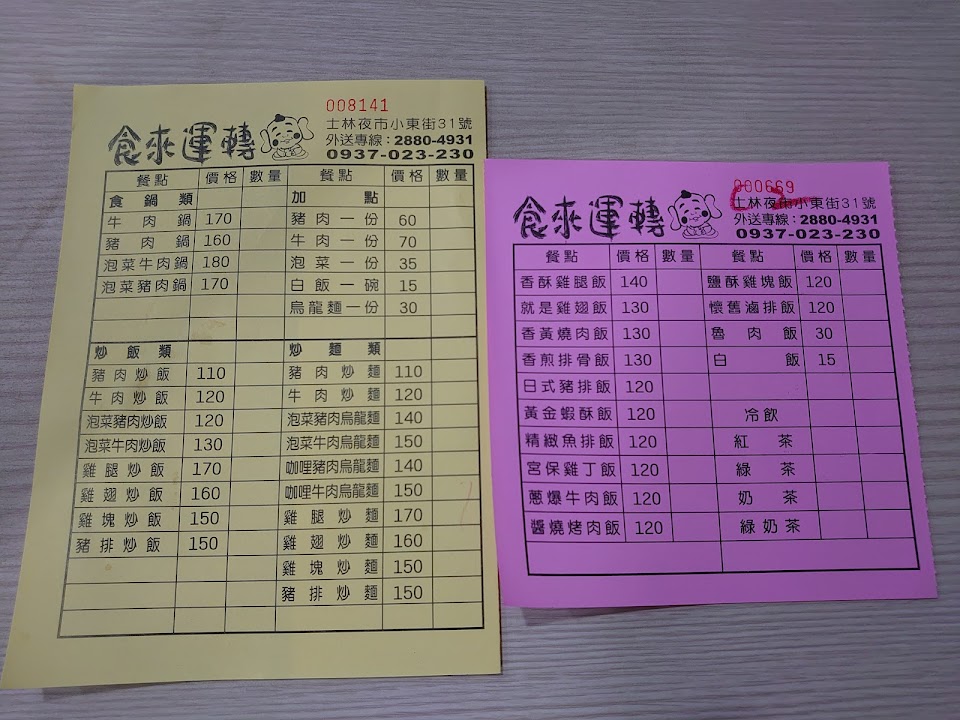 008141
食來運轉
士林夜市小東街31號
外送專線：2880-4931
0937-023-230
餐點 價格 數量 餐點 價格 數量
食鍋類 加點
牛肉鍋 170 豬肉一份 60
豬肉鍋 160 牛肉一份 70
泡菜牛肉鍋 180 泡菜一份 35
泡菜豬肉鍋 170 白飯一碗 15
烏龍麵一份 30
炒飯類 炒麵類
豬肉炒飯 110 豬肉炒麵 110
牛肉炒飯 120 牛肉炒麵 120
泡菜豬肉炒飯 120 泡菜豬肉烏龍麵 140
泡菜牛肉炒飯 130 泡菜牛肉烏龍麵 150
雞腿炒飯 170 咖哩豬肉烏龍麵 140
雞翅炒飯 160 咖哩牛肉烏龍麵 150
雞塊炒飯 150 雞腿炒麵 170
豬排炒飯 150 雞翅炒麵 160
雞塊炒麵 150
豬排炒麵 150
000669
食來運轉
士林夜市小東街31號
外送專線：2880-4931
0937-023-230
餐點 價格 數量 餐點 價格 數量
香酥雞腿飯 140 鹽酥雞塊飯 120
就是雞翅飯 130 懷舊滷排飯 120
香黃燒肉飯 130 魯肉飯 30
香煎排骨飯 130 白飯 15
日式豬排飯 120
黃金蝦酥飯 120 冷飲
精緻魚排飯 120 紅茶
宮保雞丁飯 120 綠茶
蔥爆牛肉飯 120 奶茶
醬燒烤肉飯 120 綠奶茶